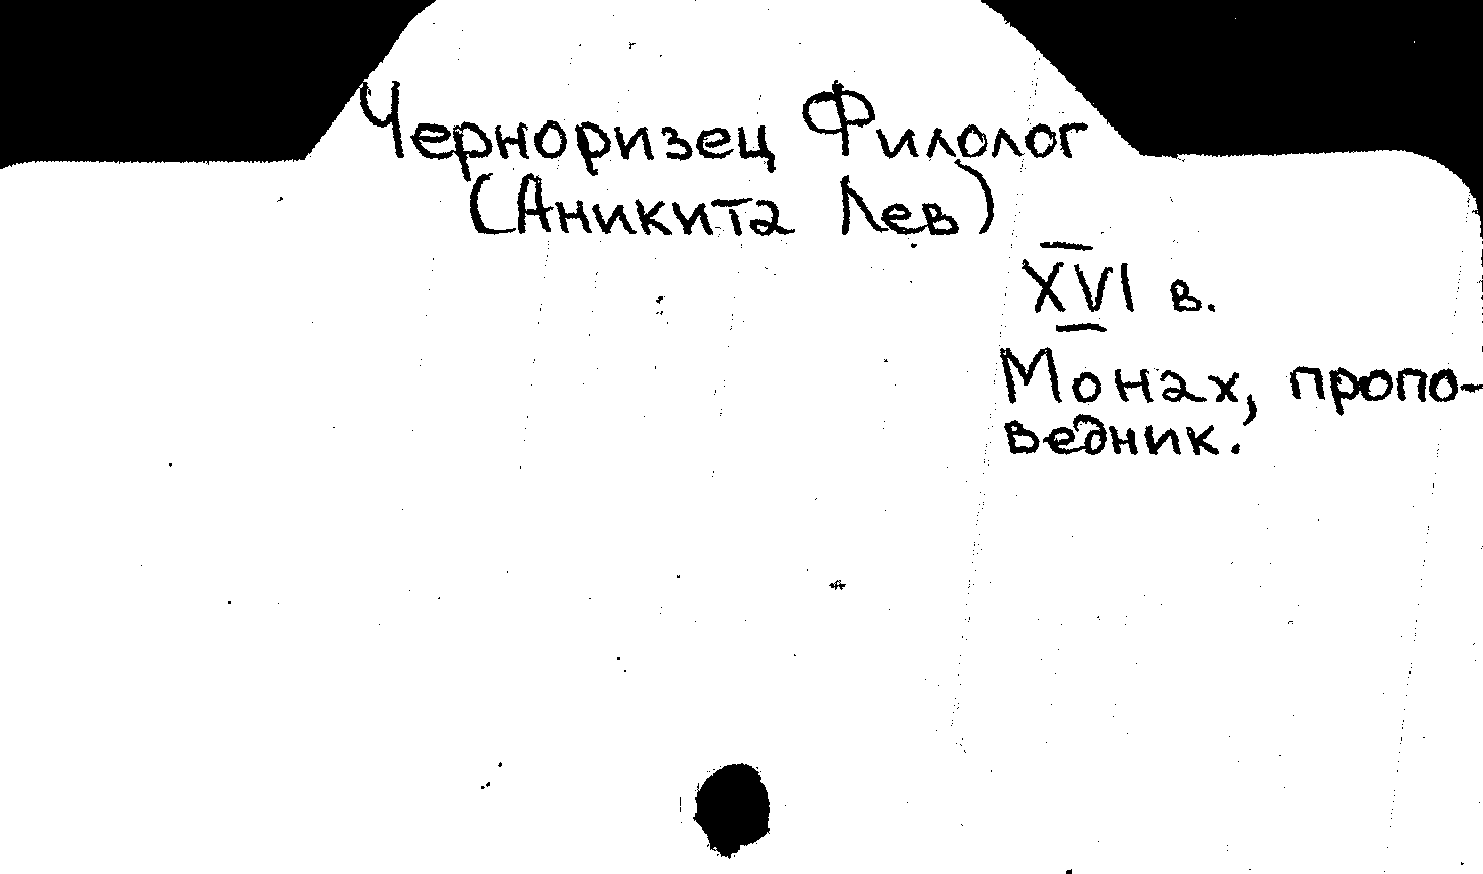 Черноризец Филолог
(Аникита Лев)
XVI в.
Монах, пропо-
ведник.